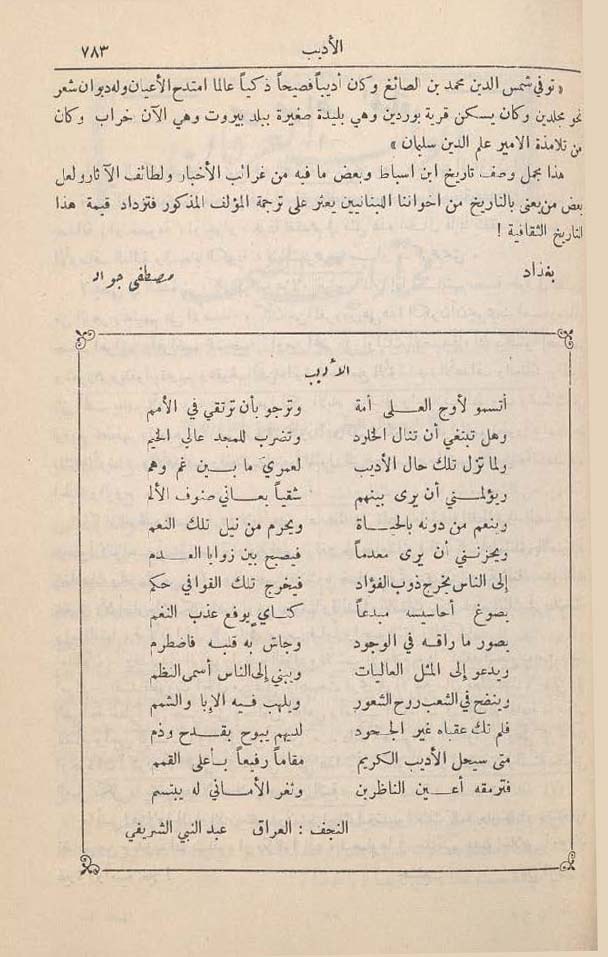 الأديب ٧٨٣
« توفي شمس الدين محمد بن الصائغ وكان أديباً فصيحاً ذكياً عالماً امتدح الأعيان وله ديوان شعر
نحو مجلدين وكان يسكن قرية بوردين وهي بليدة صغيرة ببلد بيروت وهي الآن خراب وكان
من تلامذة الامير علم الدين سليمان »
هذا مجمل وصف تاريخ ابن اسباط وبعض ما فيه من غرائب الأخبار ولطائف الآثار ولعل
بعض من يعنى بالتاريخ من اخواننا اللبنانيين يعثر على ترجمة المؤلف المذكور فتزداد قيمة هذا
التاريخ الثقافية !
بغداد مصطفى جواد
الأديب
أتسمو لأوج العلى أمة وترجو بأن ترتقي في الأمم
وهل تبتغي أن تنال الخلود وتضرب للمجد عالي الخيم
ولما تزل تلك حال الأديب لعمري ما بين غم وهم
ويؤلمني أن يرى بينهم شقياً يعاني صنوف الألم
وينعم من دونه بالحياة ويحرم من نيل تلك النعم
ويحزنني أن يرى معدماً فيصبح بين زوايا العدم
إلى الناس يخرج ذوب الفؤاد فيخرج تلك القوافي حكم
يصوغ أحاسيسه مبدعاً كناي يوقع عذب النغم
يصور ما راقه في الوجود وجاش به قلبه فاضطرم
ويدعو إلى المثل العاليات ويبني إلى الناس أسمى النظم
وينضج في الشعب روح الشعور ويلهب فيه الإبا والشمم
فلم تك عقباه غير الجحود لديهم يبوح بقدح وذم
متى سيحل الأديب الكريم مقاماً رفيعاً بأعلى القمم
فترمقه أعين الناظرين وثغر الأماني له يبتسم
النجف : العراق عبد النبي الشريفي